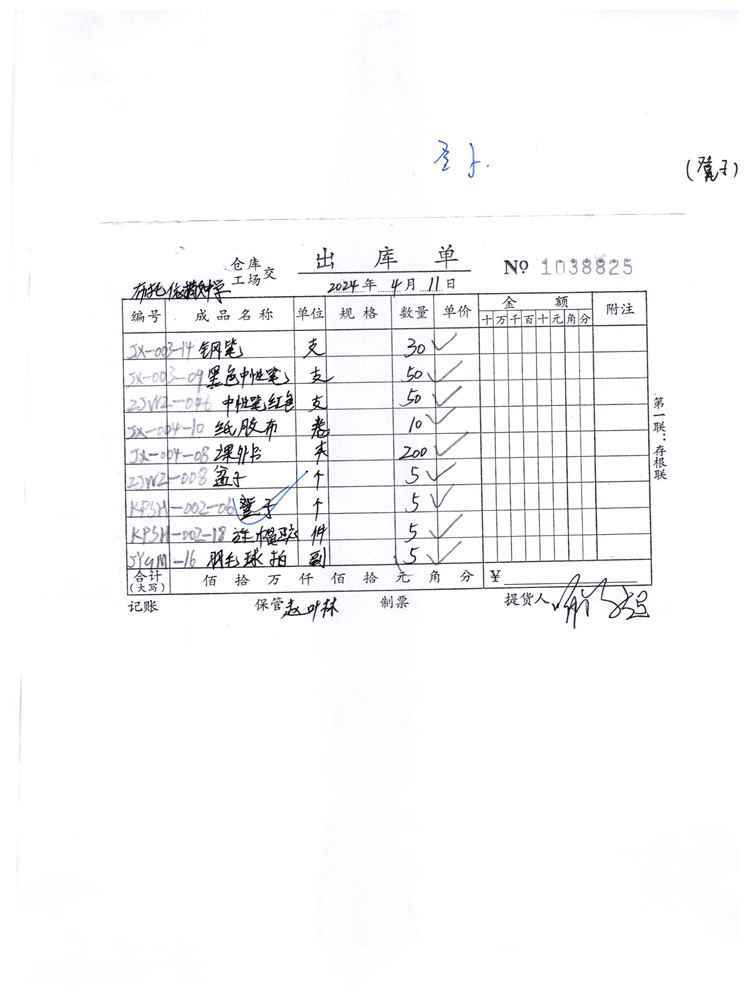 出库单
仓库
工场 交
2024年4月11日
№ 1038825
编号 成品名称 单位 规格 数量 单价 金额 附注
十万千百十元角分
JX-003-14 钢笔 支 30 ✓
JX-003-09 黑色中性笔 支 50 ✓
ZJWZ-046 中性笔红色 支 50 ✓
JX-004-10 纸胶布 卷 10 ✓
JX-004-08 课外书 本 200 ✓
ZJWZ-008 盆子 个 5 ✓
KPSH-002-06 子 个 5 ✓
KPSH-002-18 连帽 件 5 ✓
JYGM-16 羽毛球拍 副 5 ✓
合计(大写) 佰拾万仟佰拾元角分 ¥
第一联：存根联
记账 保管 赵叶林 制票 提货人